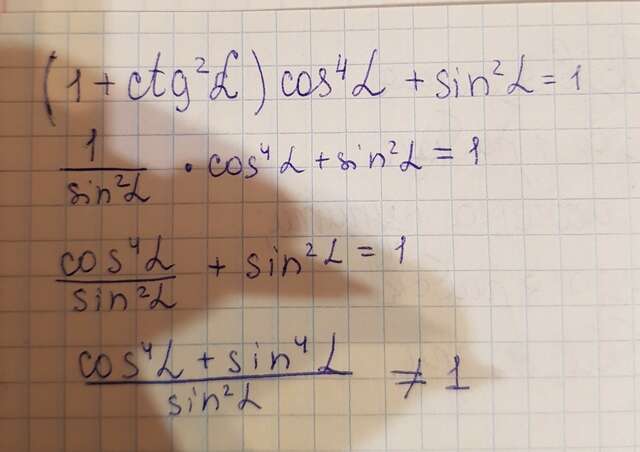 (1 + ctg²α) cos⁴α + sin²α = 1
1/sin²α · cos⁴α + sin²α = 1
cos⁴α/sin²α + sin²α = 1
(cos⁴α + sin⁴α)/sin²α ≠ 1